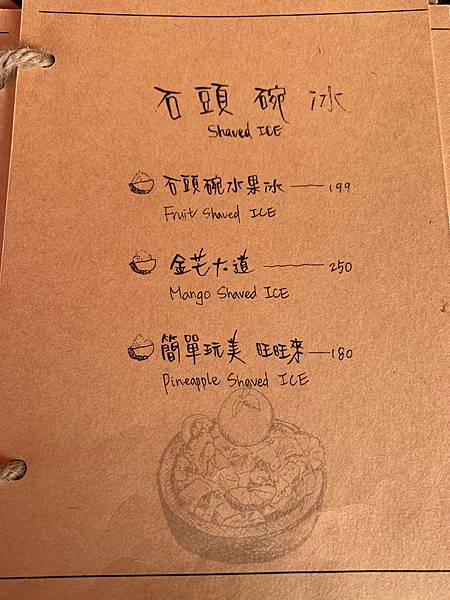 石頭碗冰
Shaved ICE
石頭碗水果冰 —— 199
Fruit Shaved ICE
金芒大道 —— 250
Mango Shaved ICE
簡單玩美 旺旺來 — 180
Pineapple Shaved ICE